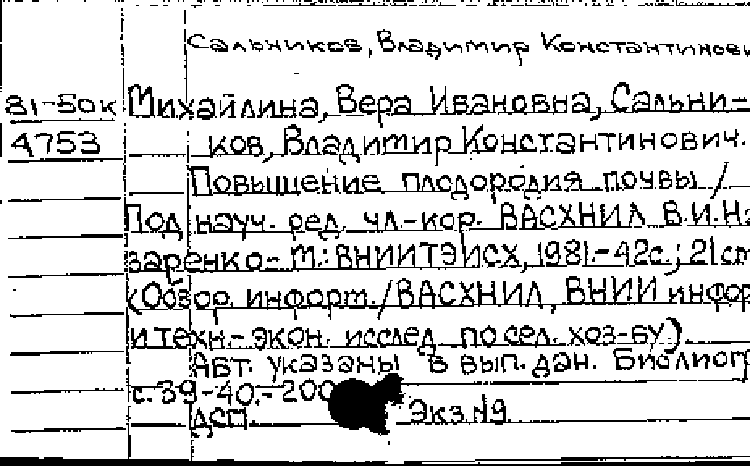 Сальников, Владимир Константинович
81-50к Михайлина, Вера Ивановна, Сальни-
4753 ков, Владимир Константинович.
Повышение плодородия почвы /
Под науч. ред. чл.-кор. ВАСХНИЛ В.И. На
заренко.- М.: ВНИИТЭИСХ, 1981.-42с.; 21 см
(Обзор. информ./ВАСХНИЛ, ВНИИ инфор
и техн.-экон. исслед. по сел. хоз-ву).
Авт. указаны в вып. дан. Библиогр
с. 39-40.-200
ДСП. Экз. №9